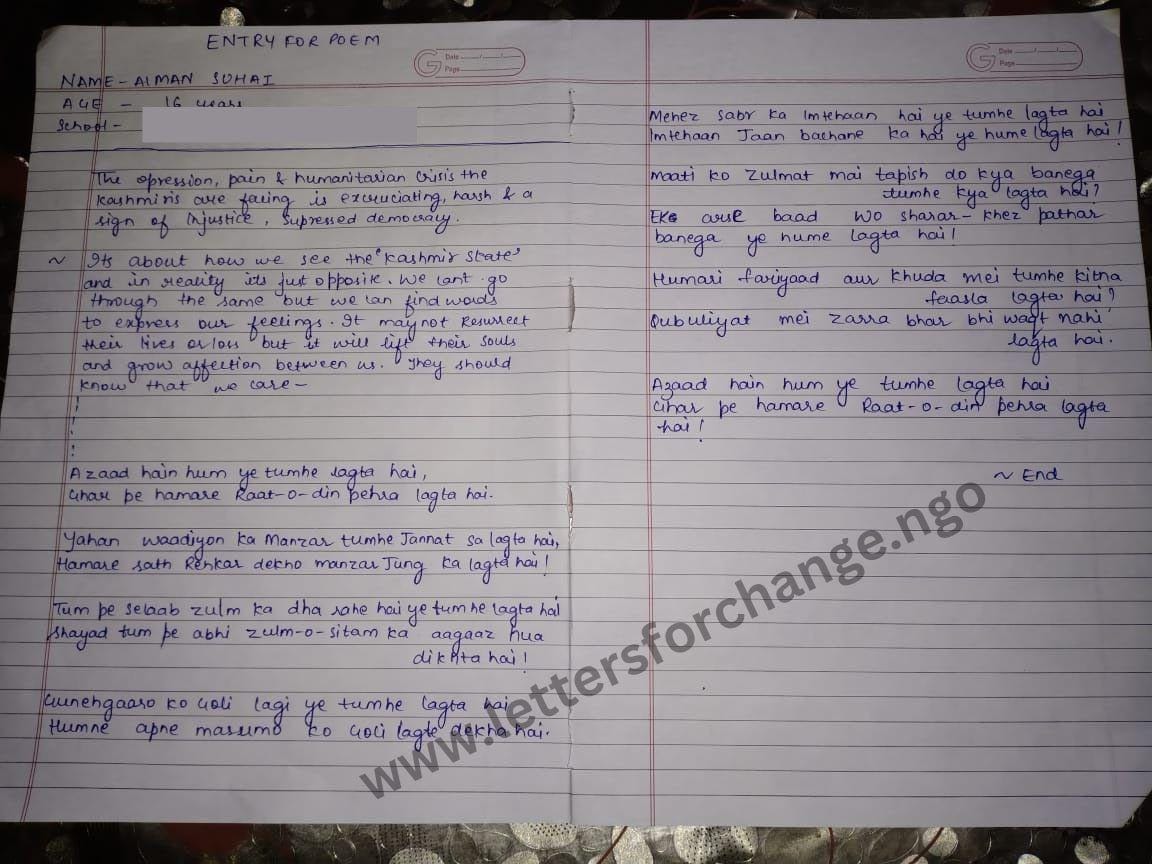 ENTRY FOR POEM
G Date
Page
NAME - AIMAN SUHAI
AGE - 16 years
School -
The opression, pain & humanitarian Crisis the
Kashmiris are facing is excruciating, harsh & a
sign of Injustice, Supressed democracy.
~ Its about how we see the "Kashmir State"
and in reality its just opposite. We cant go
through the same but we can find words
to express our feelings. It may not Resurrect
their lives or loss but it will lift their souls
and grow affection between us. They should
know that we care -
Azaad hain hum ye tumhe lagta hai,
Ghar pe hamare Raat-o-din pehra lagta hai.
Yahan waadiyon ka Manzar tumhe Jannat sa lagta hai,
Hamare sath Rehkar dekho manzar Jung ka lagta hai!
Tum pe selaab zulm ka dha rahe hai ye tumhe lagta hai
Shayad tum pe abhi zulm-o-sitam ka aagaaz hua
dikhta hai!
Gunehgaaro ko Goli lagi ye tumhe lagta hai
Humne apne masumo ko Goli lagte dekha hai.
G Date
Page
Mehez sabr ka Imtehaan hai ye tumhe lagta hai
Imtehaan Jaan bachane ka hai ye hume lagta hai!
Maati ko Zulmat mai tapish do kya banega
tumhe kya lagta hai?
Ek arse baad wo sharar-khez pathar
banega ye hume lagta hai!
Humari fariyaad aur Khuda mei tumhe kitna
faasla lagta hai?
Qubuliyat mei zarra bhar bhi waqt nahi
lagta hai.
Azaad hain hum ye tumhe lagta hai
Ghar pe hamare Raat-o-din pehra lagta
hai!
~ End
www.lettersforchange.ngo